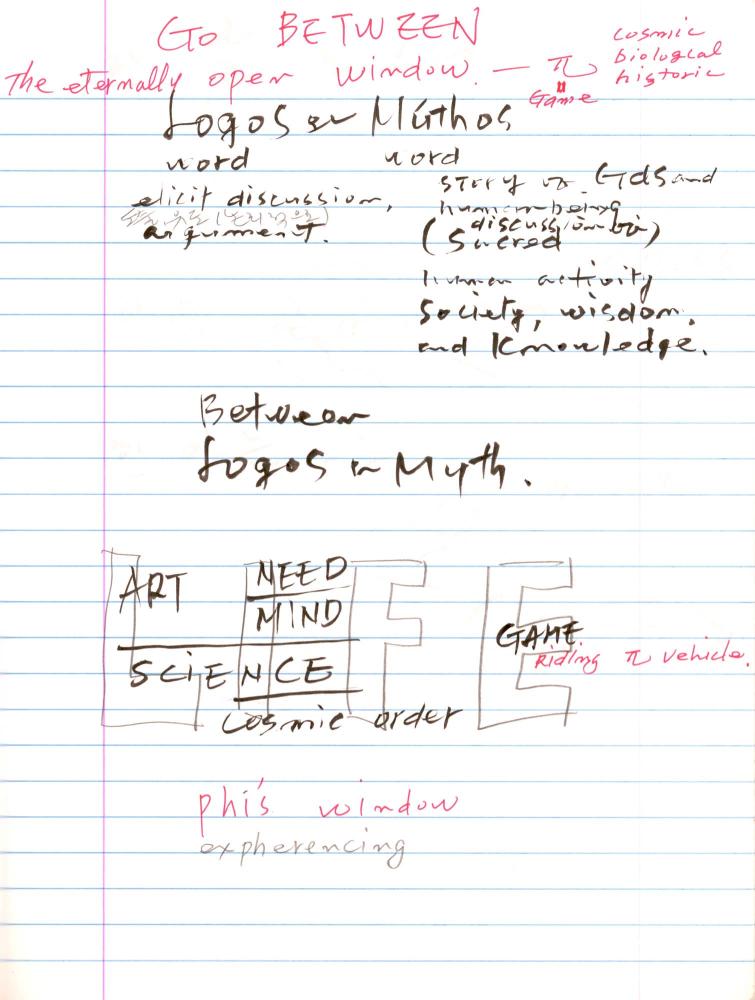 GO BETWEEN
The eternally open window. — π
cosmic
biological
historic
"
Game
Logos or Múthos
word word
elicit discussion,
argument.
story of Gds and
human-being
discussion
(Sacred )
human activity
Society, wisdom,
and Knowledge.
Between
Logos n Myth.
ART NEED
MIND
GAME
Ridling π vehicle.
SCIENCE
Cosmic order
phi's window
expherencing